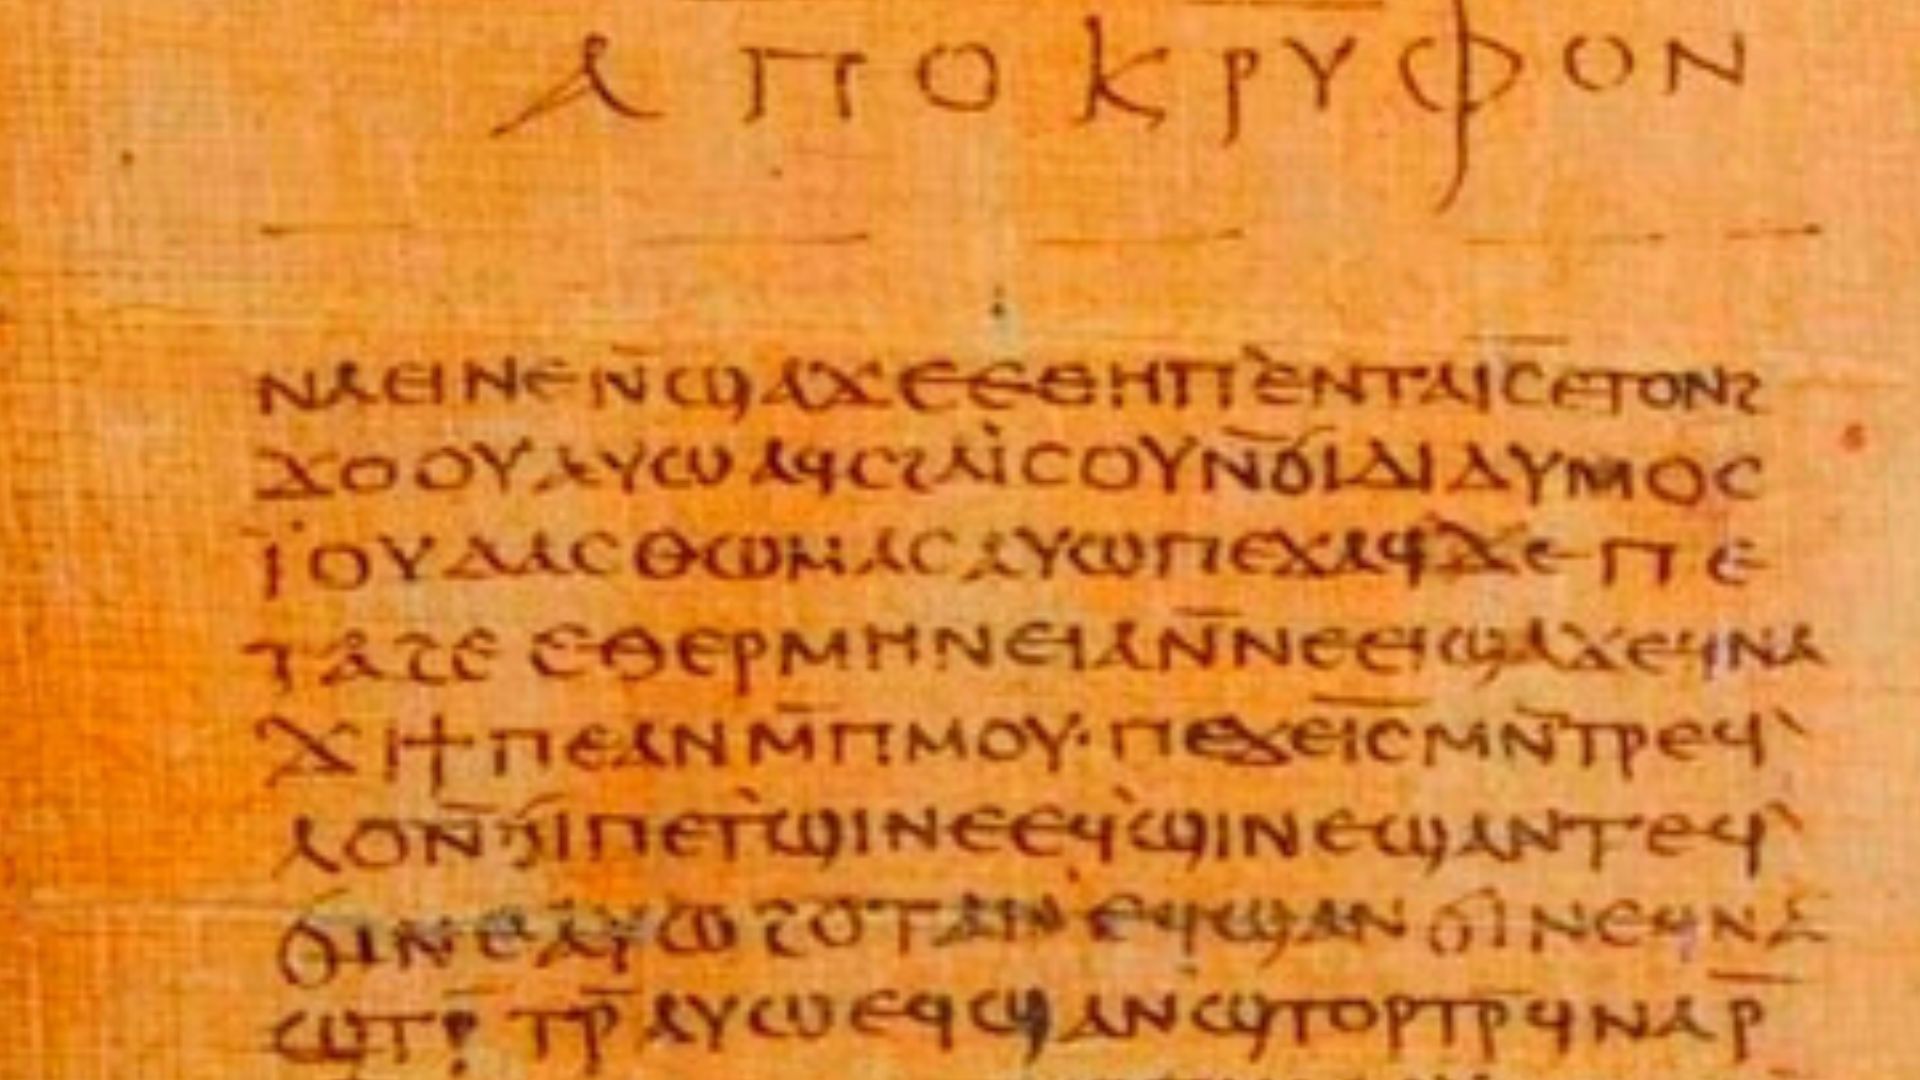 ⲁⲡⲟⲕⲣⲩⲫⲟⲛ
ⲛⲁⲉⲓⲛⲉⲛ̄ϣⲁϫⲉⲉⲑⲏⲡ`ⲉⲛⲧⲁⲓ̅ⲥ̅ⲉⲧⲟⲛϩ
ϫⲟⲟⲩⲁⲩⲱⲁϥⲥϩⲁⲓ̈ⲥⲟⲩⲛ̄ϭⲓⲇⲓⲇⲩⲙⲟⲥ
ⲓ̈ⲟⲩⲇⲁⲥⲑⲱⲙⲁⲥⲁⲩⲱⲡⲉϫⲁϥϫⲉⲡⲉ
ⲧⲁϩⲉⲉⲑⲉⲣⲙⲏⲛⲉⲓⲁⲛ̄ⲛⲉⲉⲓϣⲁϫⲉϥⲛⲁ
ϫⲓϯⲡⲉⲁⲛⲙ̄ⲡⲙⲟⲩ·ⲡⲉϫⲉⲓ̅ⲥ̅ⲙⲛ̄ⲧⲣⲉϥ`
ⲗⲟⲛ̄ϭⲓⲡⲉⲧ`ϣⲓⲛⲉⲉϥ`ϣⲓⲛⲉϣⲁⲛⲧⲉϥ`
ϭⲓⲛⲉⲁⲩⲱϩⲟⲧⲁⲛⲉϥϣⲁⲛϭⲓⲛⲉϥⲛⲁ
ϣⲧⲣ̄ⲧⲣ̄ⲁⲩⲱⲉϥϣⲁⲛϣⲧⲟⲣⲧⲣ̄ϥⲛⲁⲣ̄